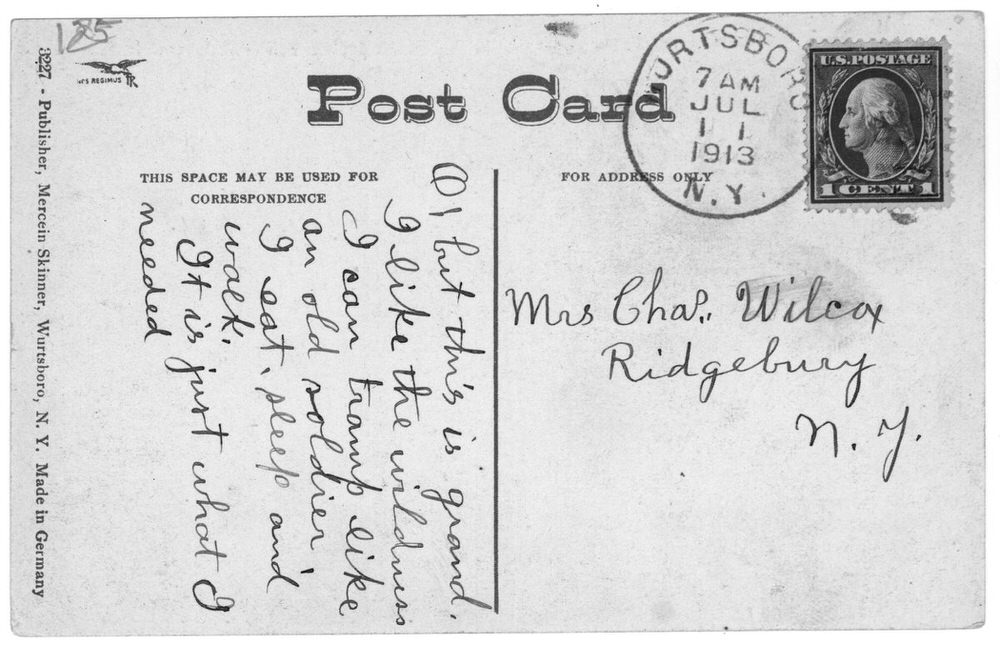 125
REGIMUS
Post Card
WURTSBORO
7 AM
JUL
11
1913
N.Y.
U.S. POSTAGE
1 CENT 1
THIS SPACE MAY BE USED FOR
CORRESPONDENCE
FOR ADDRESS ONLY
O, but this is grand.
I like the wildness
I can tramp like
an old soldier
I eat, sleep and
walk.
It is just what I
needed
Mrs Chas. Wilcox
Ridgebury
N. Y.
3227 - Publisher, Mercein Skinner, Wurtsboro, N. Y. Made in Germany